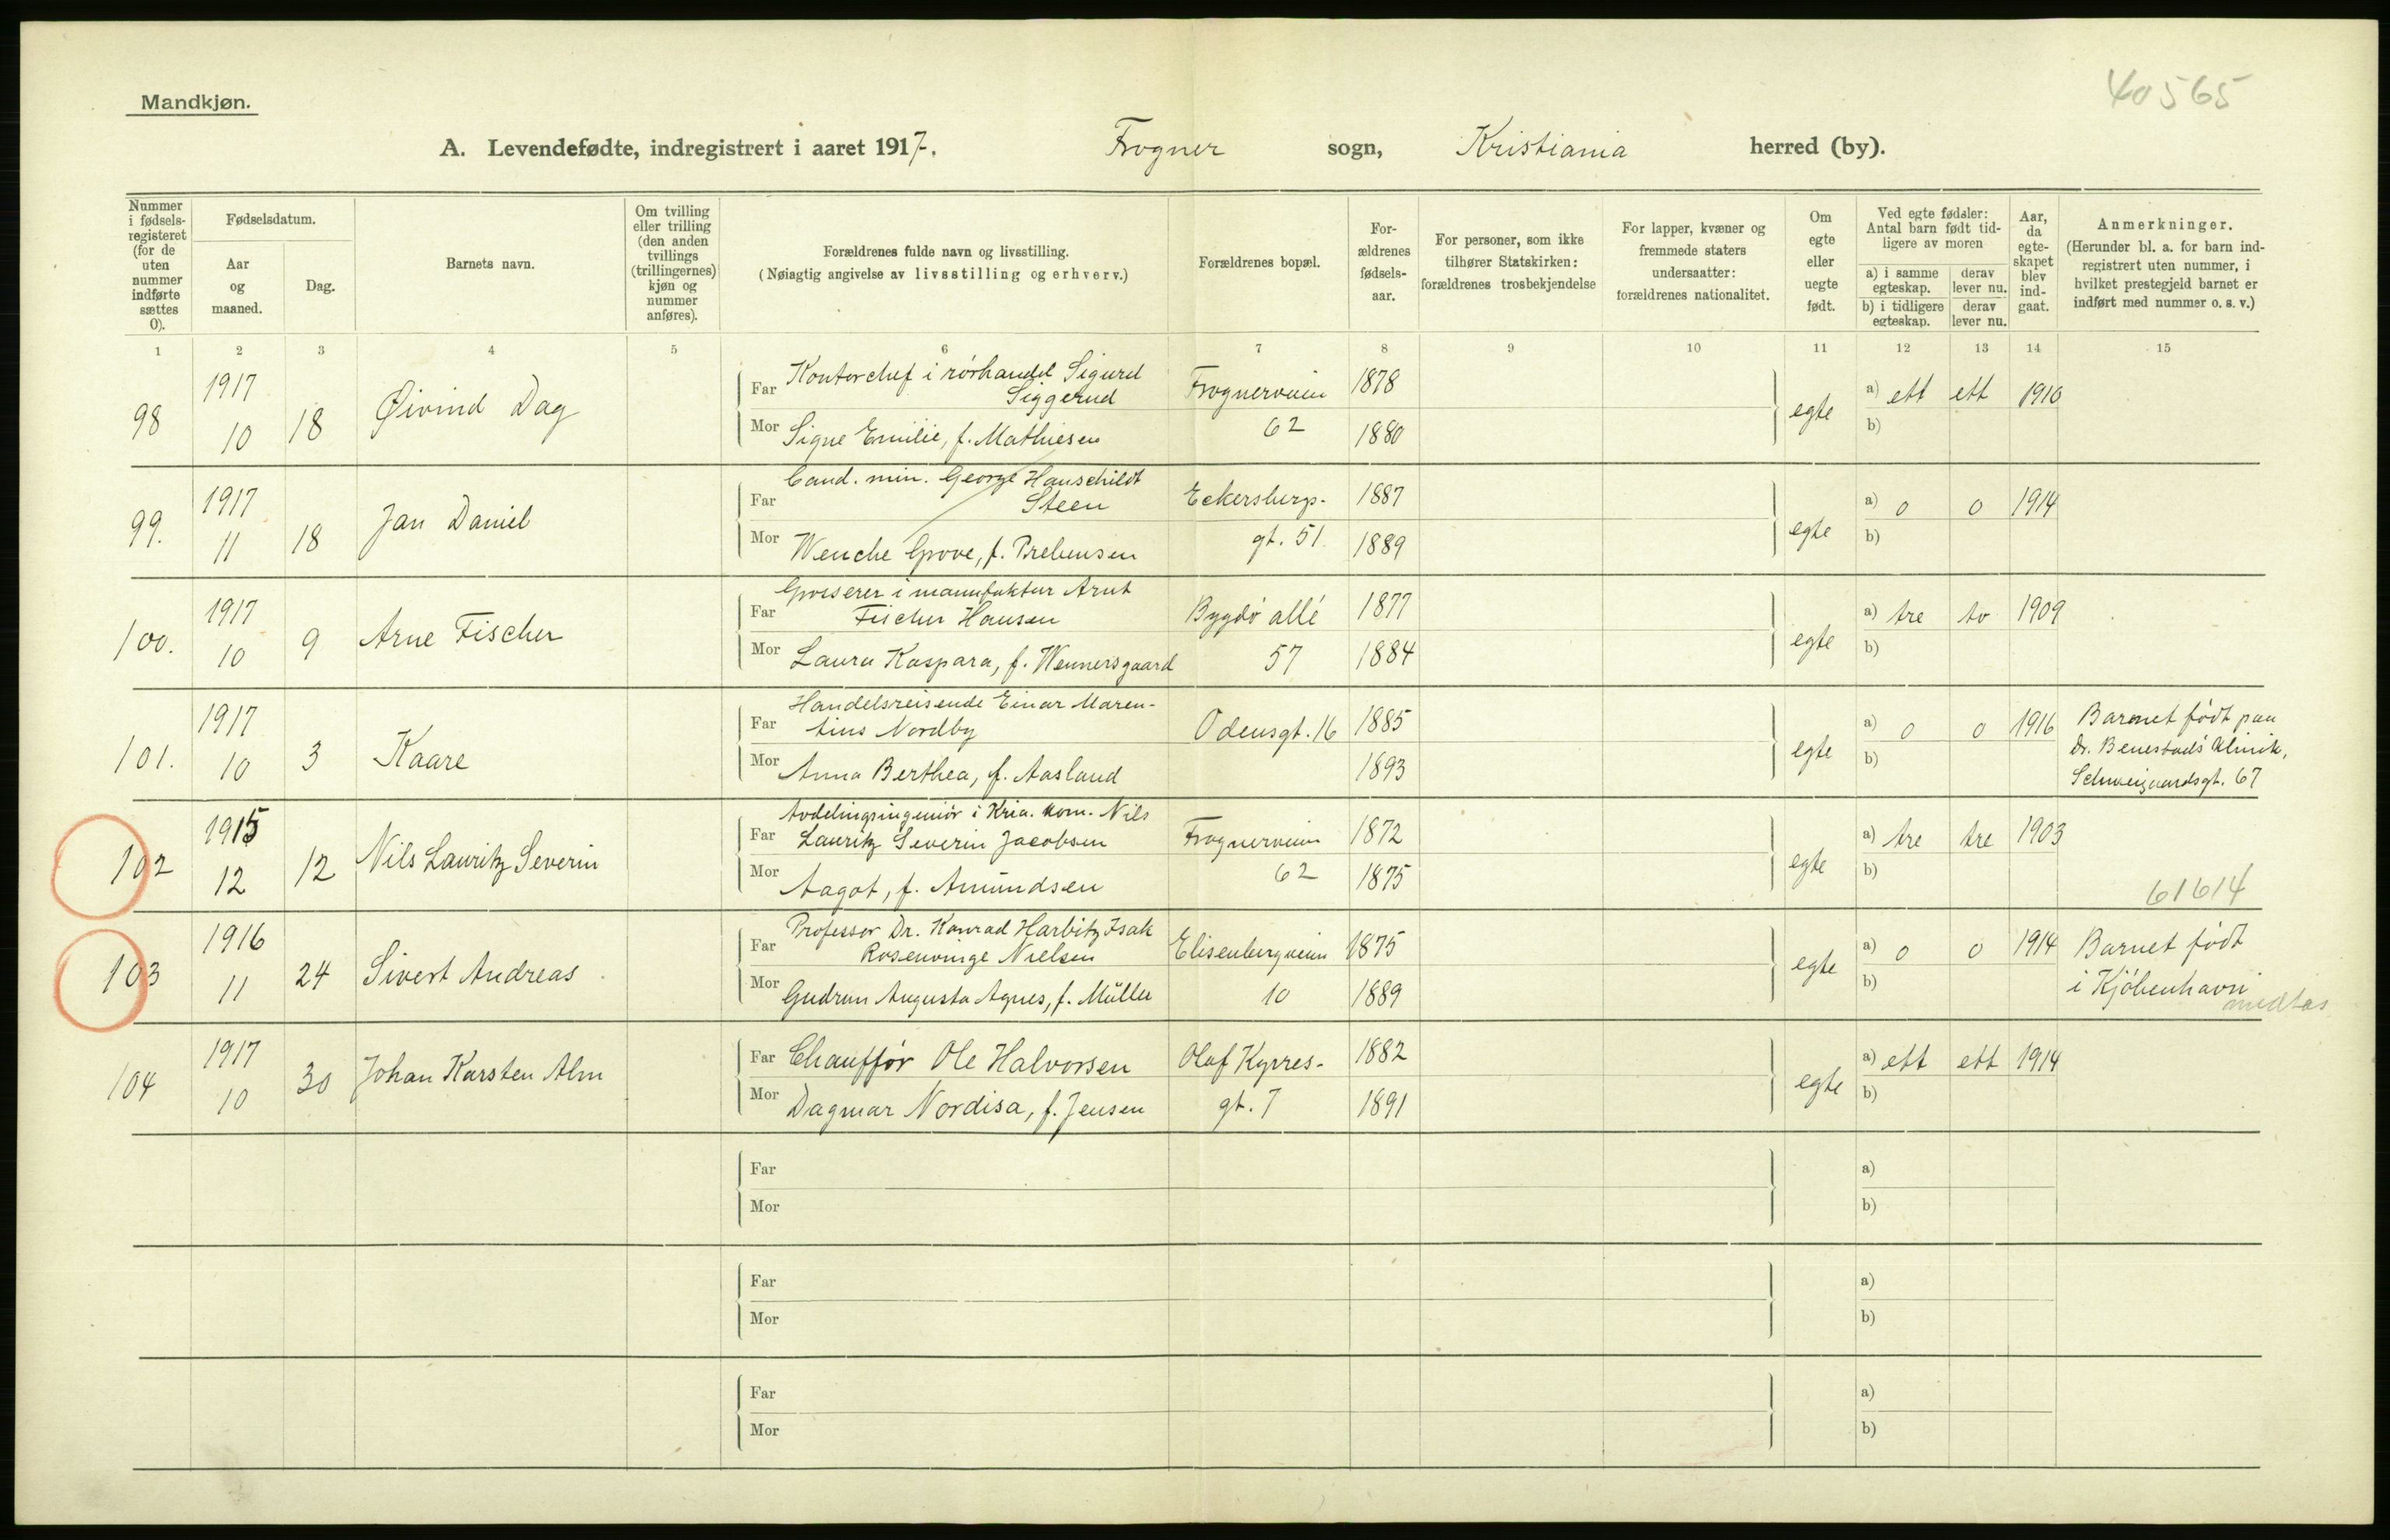 Mandkjøn.
40565
A. Levendefødte, indregistrert i aaret 1917. Frogner sogn, Kristiania herred (by).
Nummer i fødsels-registeret (for de uten nummer indførte sættes 0).
Fødselsdatum.
Aar og maaned.
Dag.
Barnets navn.
Om tvilling eller trilling (den anden tvillings (trillingernes) kjøn og nummer anføres).
Forældrenes fulde navn og livsstilling.
(Nøiagtig angivelse av livsstilling og erhverv.)
Forældrenes bopæl.
For-ældrenes fødsels-aar.
For personer, som ikke tilhører Statskirken: forældrenes trosbekjendelse
For lapper, kvæner og fremmede staters undersaatter: forældrenes nationalitet.
Om egte eller uegte født.
Ved egte fødsler: Antal barn født tid-ligere av moren
a) i samme egteskap. derav lever nu.
b) i tidligere egteskap. derav lever nu.
Aar, da egte-skapet blev ind-gaat.
Anmerkninger.
(Herunder bl. a. for barn ind-registrert uten nummer, i hvilket prestegjeld barnet er indført med nummer o. s. v.)
1 2 3 4 5 6 7 8 9 10 11 12 13 14 15
98 1917 10 18 Øivind Dag
Far Kontorchef i rörhandel Sigurd Siggerud Frognerveien 1878
Mor Signe Emilie, f. Mathiesen 62 1880
egte a) ett ett 1910
b)
99. 1917 11 18 Jan Daniel
Far Cand. min. George Hauschildt Steen Eckersbergs- 1887
Mor Wenche Grove, f. Prebensen gt. 51. 1889
egte a) 0 0 1914
b)
100. 1917 10 9 Arne Fischer
Far Grosserer i manufaktur Arnt Fischer Hansen Bygdö allé 1877
Mor Laura Kaspara, f. Wennersgaard 57 1884
egte a) tre to 1909
b)
101. 1917 10 3 Kaare
Far Handelsreisende Einar Maren-tius Nordby Odensgt. 16 1885
Mor Anna Berthea, f. Aasland 1893
egte a) 0 0 1916
b)
Barnet födt paa
Dr. Benestads Klinik,
Schweigaardsgt. 67
102 1915 12 12 Nils Lauritz Severin
Far Avdelingsingeniör i Kria. kom. Nils Lauritz Severin Jacobsen Frognerveien 1872
Mor Aagot, f. Amundsen 62 1875
egte a) tre tre 1903
b)
61614
103 1916 11 24 Sivert Andreas
Far Professor Dr. Konrad Harbitz Isak Rosenvinge Nielsen Elisenbergveien 1875
Mor Gudrun Augusta Agnes, f. Müller 10 1889
egte a) 0 0 1914
b)
Barnet födt
i Kjöbenhavn
medtas
104 1917 10 30 Johan Karsten Alm
Far Chaufför Ole Halvorsen Olaf Kyrres- 1882
Mor Dagmar Nordisa, f. Jensen gt. 7 1891
egte a) ett ett 1914
b)
Far a)
Mor b)
Far a)
Mor b)
Far a)
Mor b)